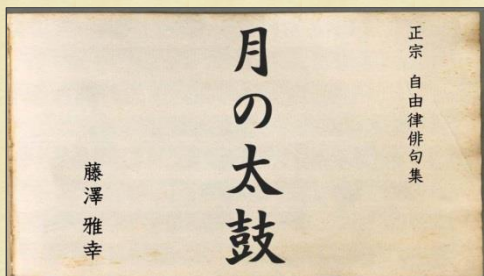 正宗 自由律俳句集
月の太鼓
藤澤 雅幸